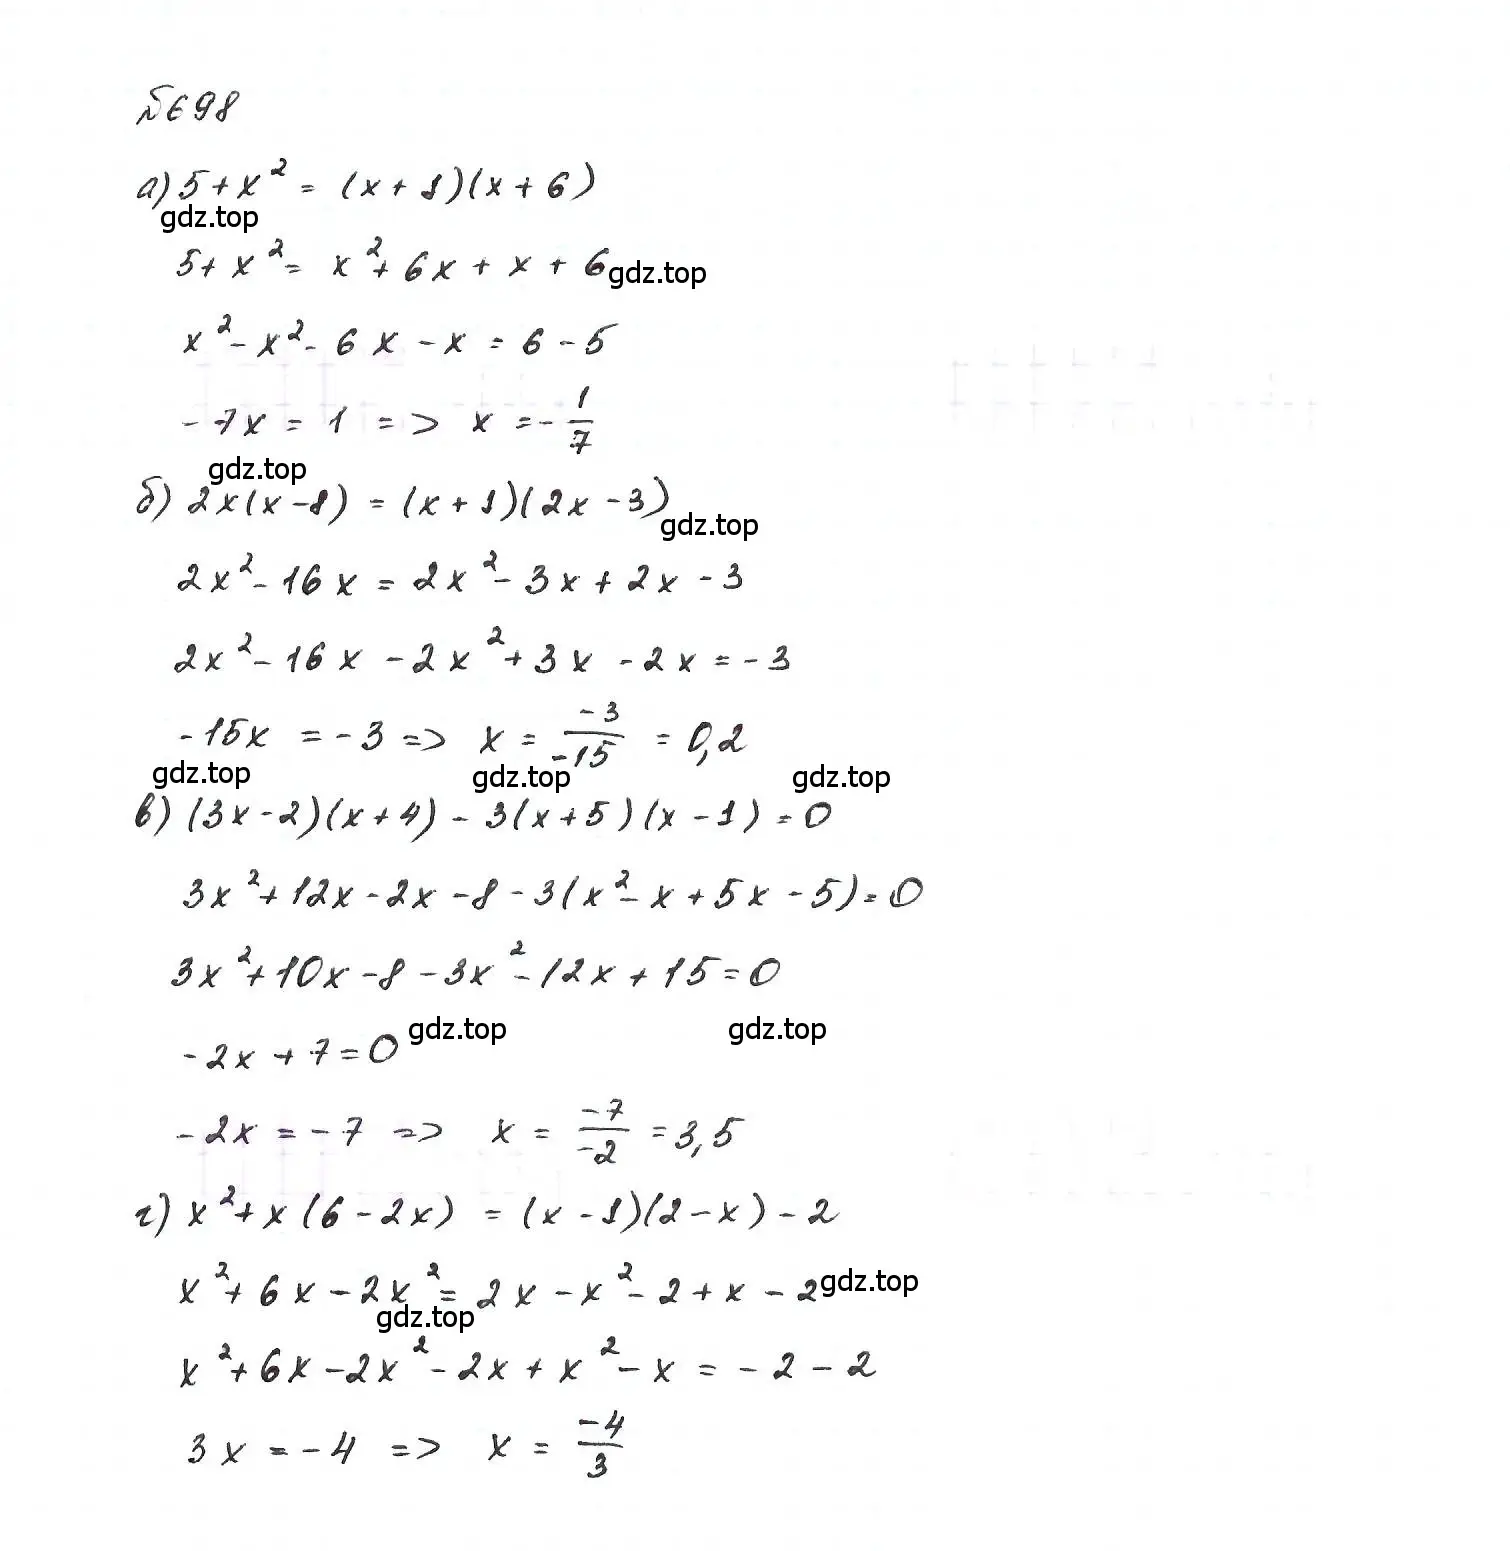 №698
а) 5+x² = (x+1)(x+6)
gdz.top
5+x² = x²+6x+x+6
gdz.top
x²-x²-6x-x=6-5
-7x=1 => x=-1/7
gdz.top
б) 2x(x-8)=(x+1)(2x-3)
gdz.top
2x²-16x=2x²-3x+2x-3
2x²-16x-2x²+3x-2x=-3
-15x=-3 => x=-3/-15=0,2
gdz.top gdz.top gdz.top
в) (3x-2)(x+4)-3(x+5)(x-1)=0
3x²+12x-2x-8-3(x²-x+5x-5)=0
3x²+10x-8-3x²-12x+15=0
gdz.top gdz.top
-2x+7=0
-2x=-7 => x=-7/-2=3,5
г) x²+x(6-2x)=(x-1)(2-x)-2
x²+6x-2x²=2x-x²-2+x-2
gdz.top
gdz.top
x²+6x-2x²-2x+x²-x=-2-2
3x=-4 => x=-4/3